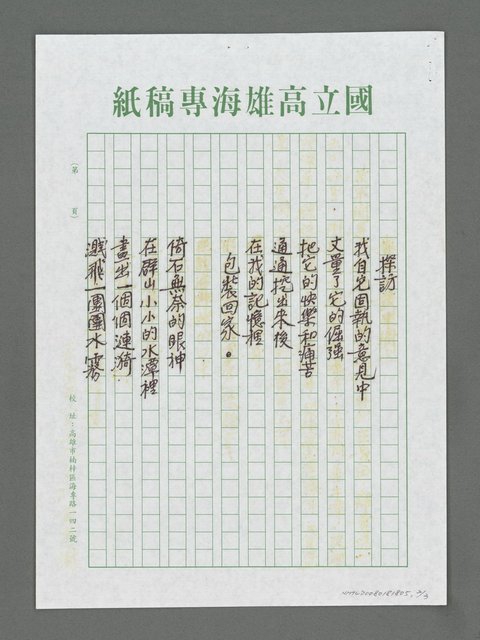 國立高雄海專稿紙
（第　頁）
探訪
我自它固執的意見中
丈量了它的倔強
把它的快樂和痛苦
通通挖出來後
在我的記憶裡
包裝回家。
倚石無奈的眼神
在群山小小的水潭裡
畫出一個個漣漪
濺飛一團團水霧
校址：高雄市楠梓區海專路一四二號
NMLT0080181805, 2/3